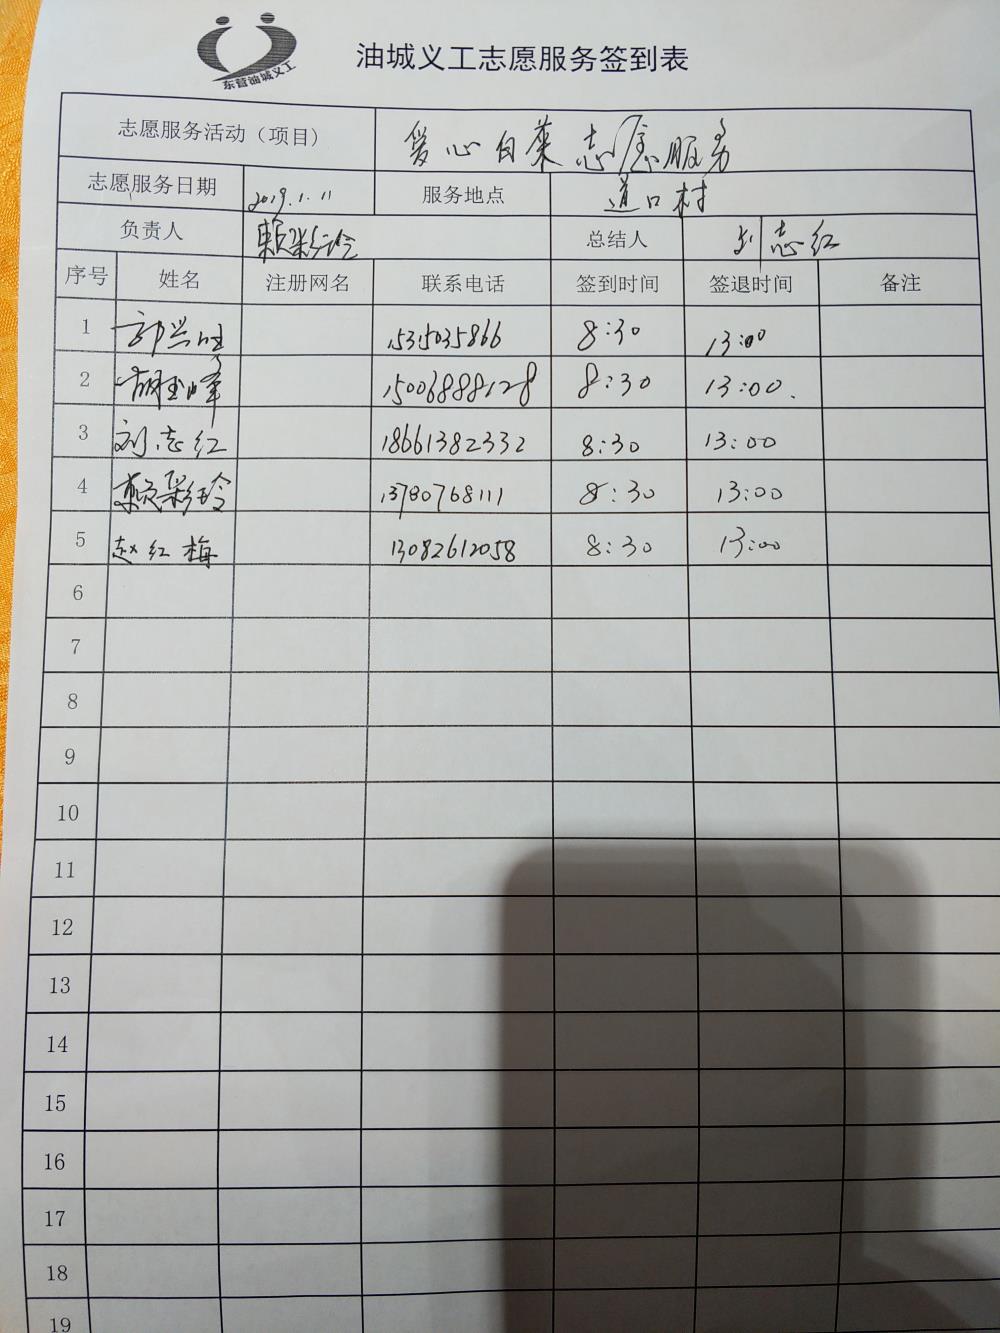 东营油城义工
油城义工志愿服务签到表
志愿服务活动（项目） 爱心白菜志愿服务
志愿服务日期 2019.1.11 服务地点 道口村
负责人 赖彩玲 总结人 刘志红
序号 姓名 注册网名 联系电话 签到时间 签退时间 备注
1 郭兰 8:30 13:00
2 胡玉峰 15006888128 8:30 13:00.
3 刘志红 18661382332 8:30 13:00
4 赖彩玲 13780768111 8:30 13:00
5 赵红梅 13082612058 8:30 13:00
6
7
8
9
10
11
12
13
14
15
16
17
18
19